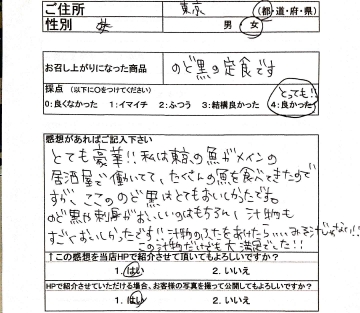 ご住所 東京 (都・道・府・県)
性別 女 男・女
お召し上がりになった商品 のど黒の定食です
採点 (以下に○をつけてください) とっても!!
0:良くなかった 1:イマイチ 2:ふつう 3:結構良かった 4:良かった
感想があればご記入下さい
とても豪華!!私は東京の魚がメインの
居酒屋で働いてて、たくさんの魚を食べてきたので
すが、ここののど黒はとてもおいしかったです。
のど黒や刺身がおいしいのはもちろん、汁物も
すごくおいしかったです!!汁物のふたをあけたら、いいみそ汁じゃない!!
この汁物だけでも大満足でした!!
↑この感想を当店HPで紹介させて頂いてもよろしいですか?
1.はい 2.いいえ
HPで紹介させていただける場合、お客様の写真を撮って公開してもよろしいですか?
1.はい 2.いいえ